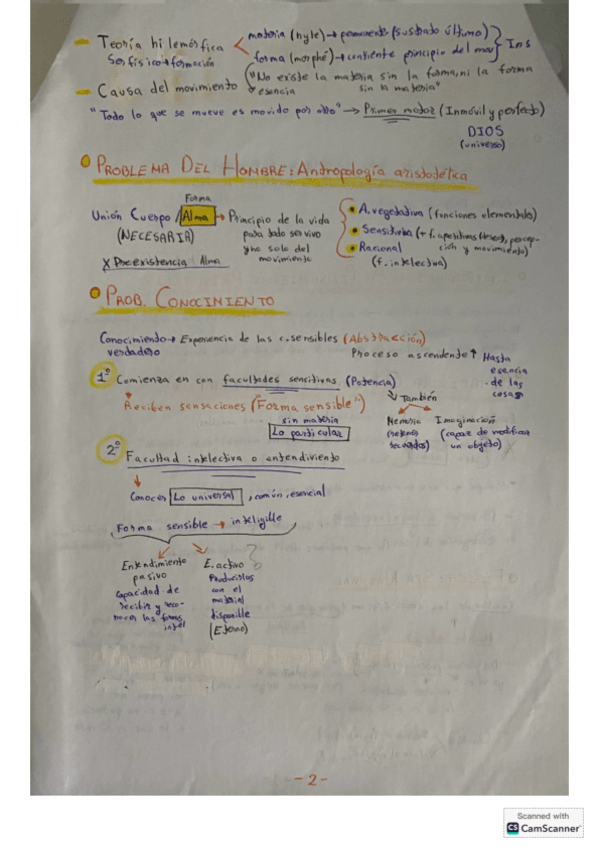 - Teoría hilemórfica
Ser físico → formación
materia (hyle) → permanente (sustrato último)
forma (morphé) → contiente principio del mov
Ins
"No existe la materia sin la forma, ni la forma
sin la materia"
esencia
- Causa del movimiento
"Todo lo que se mueve es movido por otro" → Primer motor (Inmóvil y perfecto)
DIOS
(universo)
• PROBLEMA DEL HOMBRE: Antropología aristotélica
Forma
Unión Cuerpo / Alma → Principio de la vida
(NECESARIA)
para todo ser vivo
y no solo del
movimiento
X Preexistencia Alma
• A. vegetativa (funciones elementales)
• Sensitiva (+ f. apetitivas (deseo), percep-
ción y movimiento)
• Racional
(f. intelectiva)
• PROB. CONOCIMIENTO
Conocimiento → Experiencia de las c. sensibles (Abstracción)
verdadero
Proceso ascendente ↑ Hasta
esencia
de las
cosas
1º Comienza en con facultades sensitivas (Potencia)
→ Reciben sensaciones (Forma sensible")
sin materia
Lo particular
↓ También
Memoria
(retener
recuerdos)
Imaginación
(capaz de modificar
un objeto)
2º Facultad intelectiva o entendiviento
Conocer Lo universal, común, esencial
Forma sensible → inteligible
Entendimiento
pasivo
Capacidad de
recibir y reco-
nocer las formas
intel
E. activo ?
Producirlas
con el
material
disponible
(Eterno)
- 2 -
Scanned with
CS CamScanner